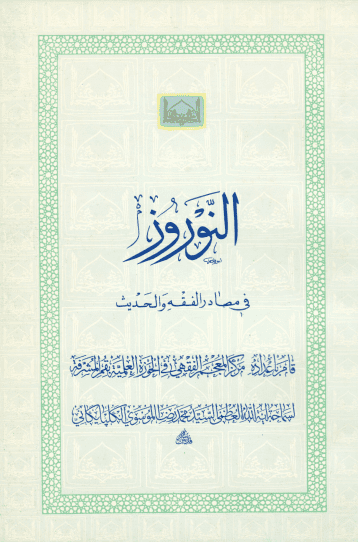 النَّوْرُوزُ
في مصادر الفقه والحديث
قام بإعداده مركز المعجم الفقهي في الحوزة العلمية بقم المشرفة
لسماحة آية الله العظمى السيد محمد رضا الموسوي الگلپايگاني